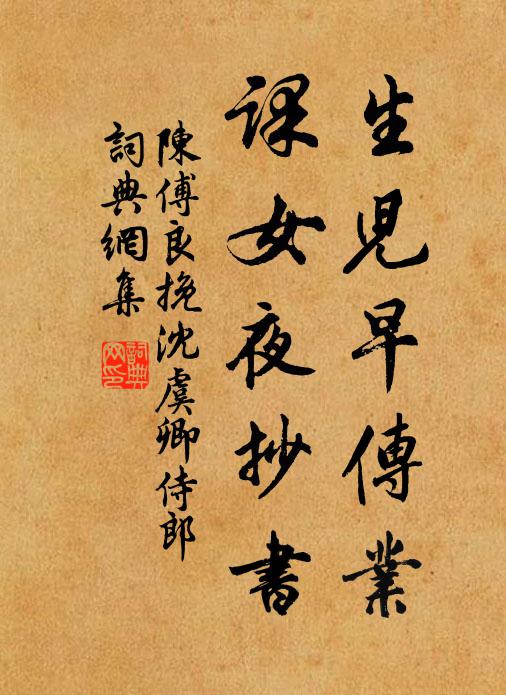 生兒早傳業
課女夜抄書
陳傅良挽沈虞卿侍郎
詞典網集
詞典網印